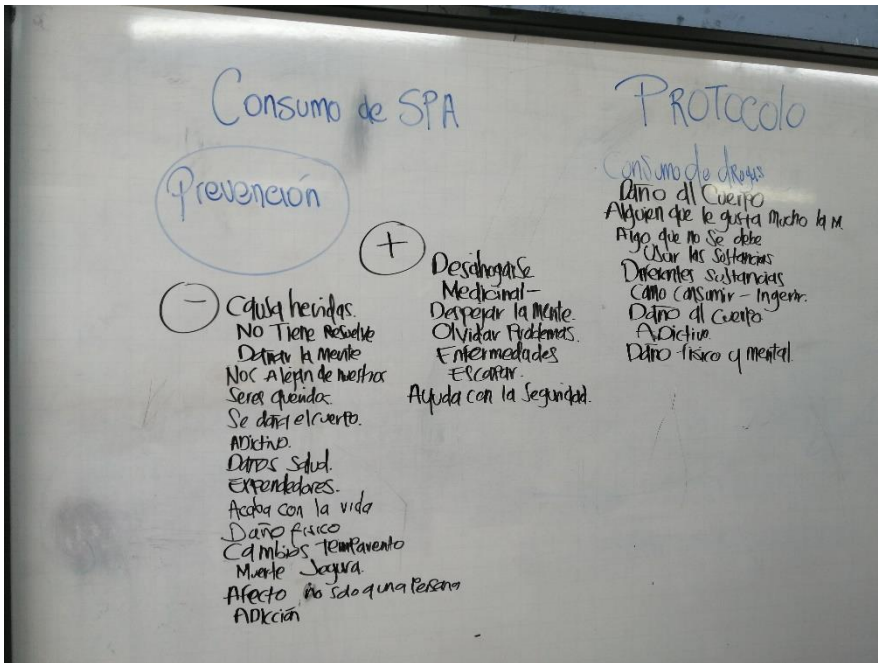 Consumo de SPA
Prevención
-
Causa heridas.
No Tiene Resuelve
Dañar la Mente
Nos Alejan de nuestros
Seres querida.
Se daña el cuerpo.
ADictivo.
Daños Salud.
Expendedores.
Acaba con la vida
Daño físico
Cambios Temparento
Muerte Segura.
Afecto no solo a una Persona
ADICCión
+
Desahogarse
Medicinal -
Despejar la Mente.
Olvidar Problemas.
Enfermedades
Escapar.
Ayuda con la Seguridad.
PROTOColo
Consumo de drogas
Daño al Cuerpo
Alguien que le gusta mucho la M.
Algo que no se debe
Usar las Sustancias
Diferentes sustancias
Como Consumir - Ingerir.
Daño al Cuerpo
ADictivo.
Daño físico y mental.